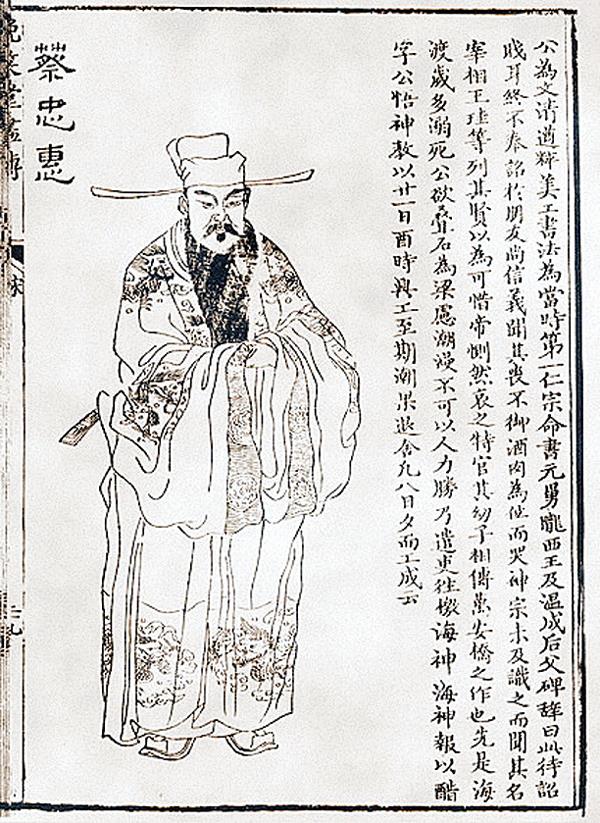 公為文清遒粹美工書法為當時第一仁宗命書元舅隴西王及溫成后父碑辭曰此待詔
賤耳終不奉詔於朋友尚信義聞其喪不御酒肉為位而哭神宗未及識之而聞其名
宰相王珪等列其賢以為可惜帝惻然哀之特官其幼子相傳萬安橋之作也先是海
渡歲多溺死公欲疊石為梁慮潮漫不可以人力勝乃遣吏往檄海神海神報以醋
字公悟神教以廿一日酉時興工至期潮果退舍凡八日夕而工成云
蔡忠惠
晚笑堂畫傳